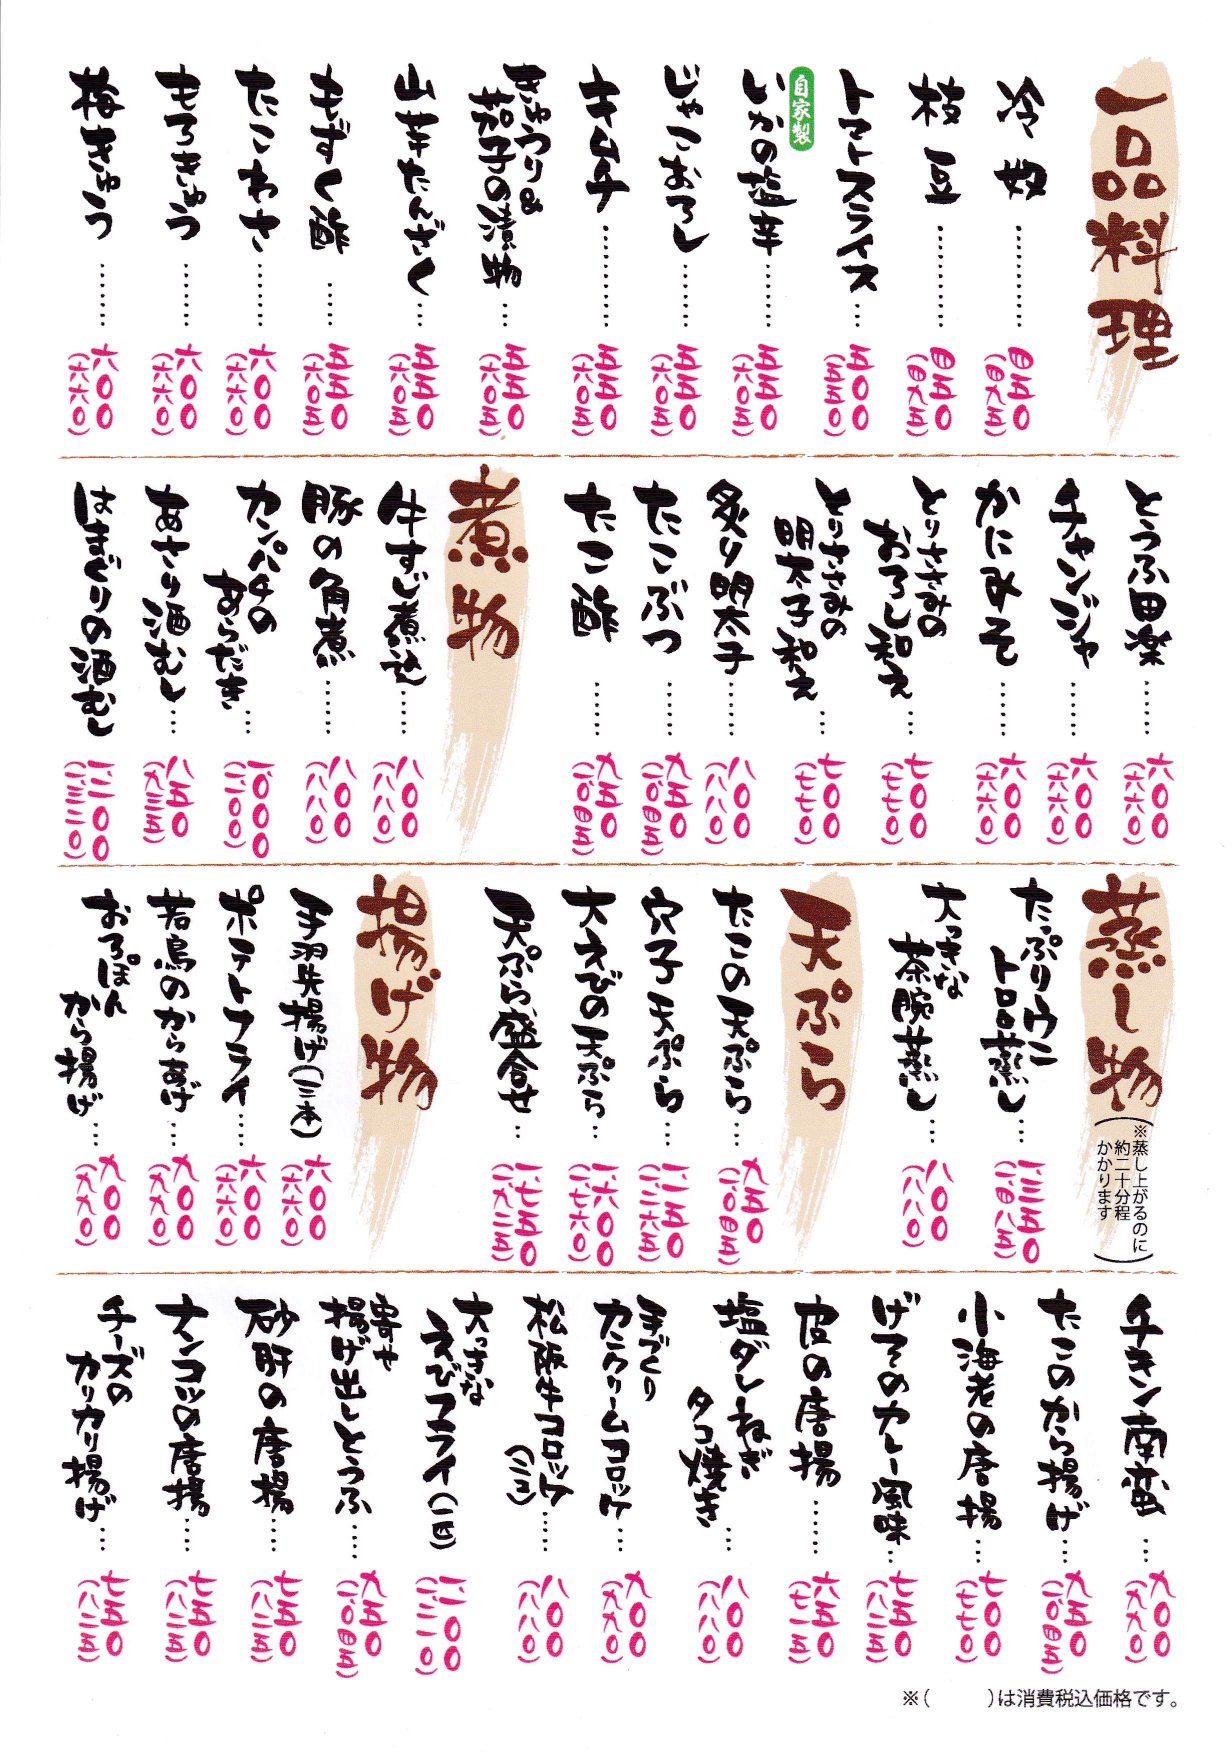 一品料理
冷奴……四五〇(四九五)
枝豆……四五〇(四九五)
トマトスライス…五〇〇(五五〇)
自家製
いかの塩辛……五五〇(六〇五)
じゃこおろし……五五〇(六〇五)
キムチ……五五〇(六〇五)
きゅうり&
茄子の漬物…五五〇(六〇五)
山芋たんざく…五五〇(六〇五)
もずく酢……五五〇(六〇五)
たこわさ……六〇〇(六六〇)
もろきゅう……六〇〇(六六〇)
梅きゅう……六〇〇(六六〇)
とうふ田楽……六〇〇(六六〇)
チャンジャ……六〇〇(六六〇)
かにみそ……六〇〇(六六〇)
とりささみの
おろし和え…七〇〇(七七〇)
とりささみの
明太子和え…七〇〇(七七〇)
炙り明太子……八〇〇(八八〇)
たこぶつ……九五〇(一、〇四五)
たこ酢……九五〇(一、〇四五)
煮物
牛すじ煮込……八〇〇(八八〇)
豚の角煮……八〇〇(八八〇)
カンパチの
あらだき…一、〇〇〇(一、一〇〇)
あさり酒むし…八五〇(九三五)
はまぐりの酒むし 一、二〇〇(一、三二〇)
蒸し物
(※蒸し上がるのに
約二十分程
かかります)
たっぷりウニ
トロロ蒸し…一、三五〇(一、四八五)
大っきな
茶腕蒸し…八〇〇(八八〇)
天ぷら
たこの天ぷら…九五〇(一、〇四五)
穴子天ぷら…一、一五〇(一、二六五)
大えびの天ぷら…一、六〇〇(一、七六〇)
天ぷら盛合せ…一、七五〇(一、九二五)
揚げ物
手羽先揚げ(三本) 六〇〇(六六〇)
ポテトフライ……六〇〇(六六〇)
若鳥のからあげ 九〇〇(九九〇)
おろぽん
から揚げ…九〇〇(九九〇)
チキン南蛮…九〇〇(九九〇)
たこのから揚げ…九五〇(一、〇四五)
小海老の唐揚…七〇〇(七七〇)
げそのカレー風味…七五〇(八二五)
皮の唐揚……六五〇(七一五)
塩ダレねぎ
タコ焼き…八〇〇(八八〇)
手づくり
カニクリームコロッケ…九〇〇(九九〇)
松阪牛コロッケ
(二コ)……八〇〇(八八〇)
大っきな
えびフライ(一匹) 一、一〇〇(一、二一〇)
寄せ
揚げ出しとうふ……九五〇(一、〇四五)
砂肝の唐揚……七五〇(八二五)
ナンコツの唐揚……七五〇(八二五)
チーズの
カリカリ揚げ…七五〇(八二五)
※(　　)は消費税込価格です。